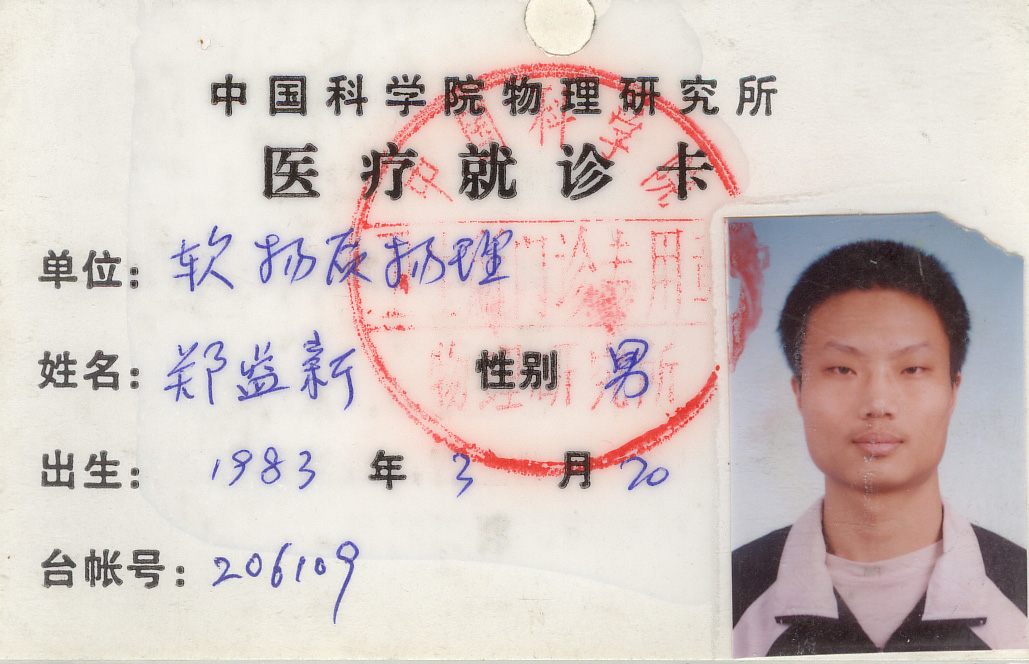 中国科学院物理研究所
医疗就诊卡
单位：软物质物理
姓名：郑益新 性别 男
出生：1983 年 3 月 20
台帐号：206109
中国科学院
门诊专用章
物理研究所